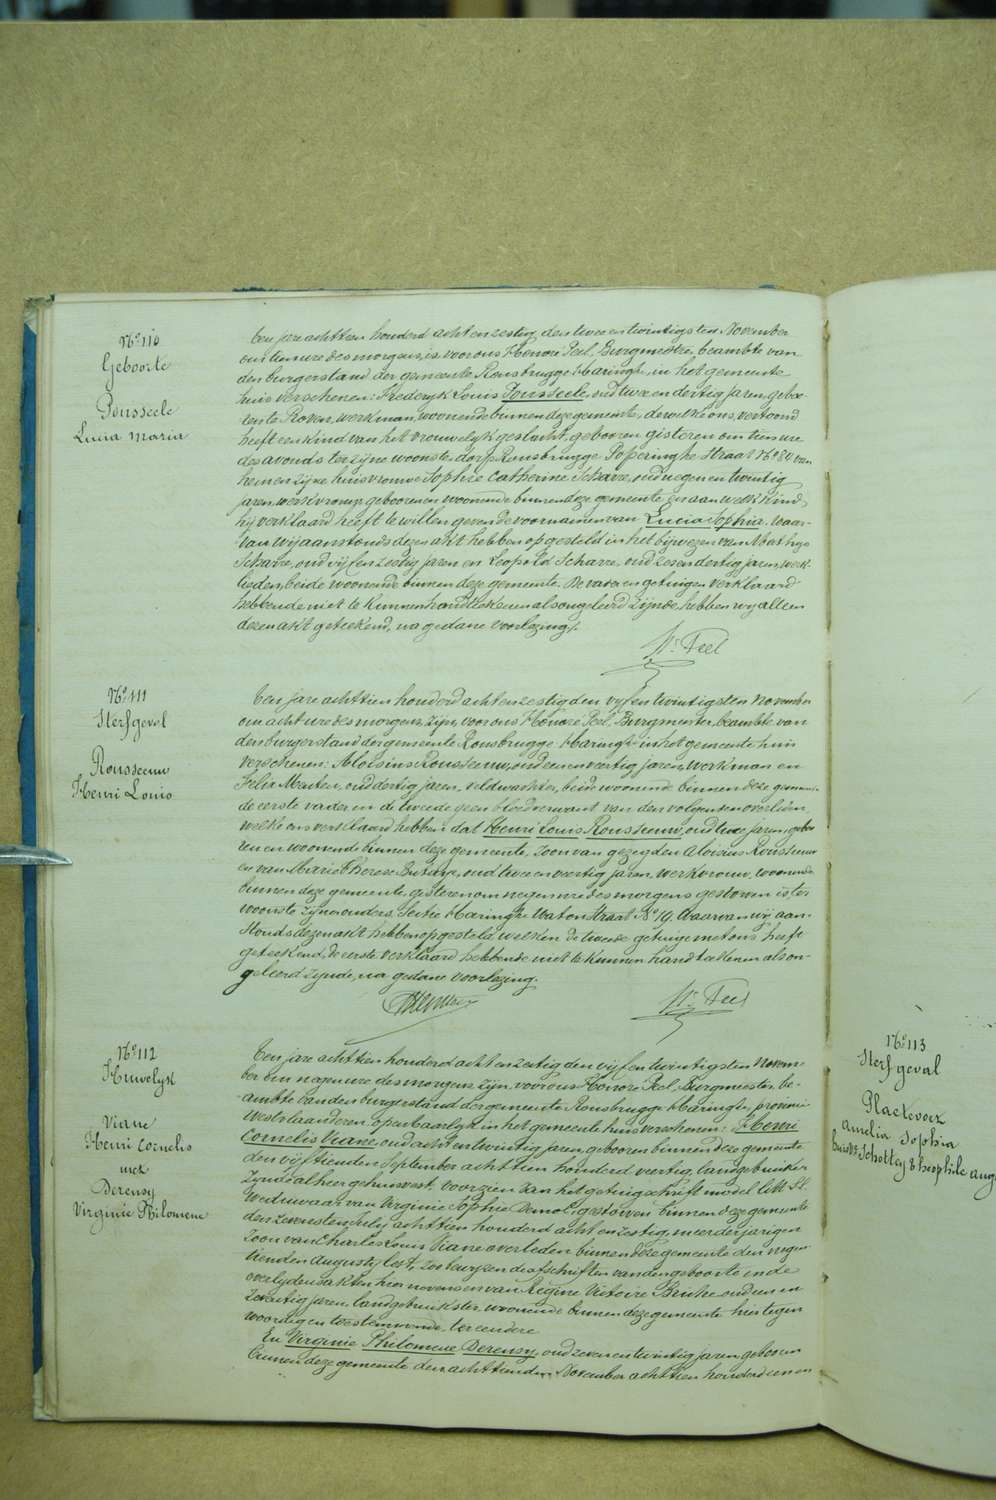 No 110
Geboorte
Pousseele
Lucia Maria
Ten jare achttien honderd acht en zestig, den twee en twintigsten November
om tien ure des morgens, is voor ons Honoré Peel, Burgmeester, beambte van
den burgerstand der gemeente Rousbrugge Haringhe, in het gemeente
huis verschenen: Frederyk Louis Pousseele, oud twee en dertig jaren, gebo-
ren te Proven, werkman, woonende binnen deze gemeente, dewelke ons vertoond
heeft een kind van het vrouwelyk geslacht, geboren gisteren om tien ure
des avonds ter zyne woonste, dorp Rousbrugge Poperinghe Straat No 84 van
hem en zyne huisvrouwe Sophie Catherine Scharre, oud negen en twintig
jaren, werkvrouw, geboren en woonende binnen deze gemeente en aan welk kind
hy verklaard heeft te willen geven de voornamen van Lucia Sophia. Waar-
van wy aanstonds dezen akt hebben opgesteld in het bywezen van Mathys
Scharre, oud vyf en zestig jaren en Leopold Scharre, oud zes en dertig jaren, werk-
lieden, beide woonende binnen deze gemeente. De vader en getuigen verklaard
hebbende niet te kunnen handteekenen als ongeleerd zynde, hebben wy alleen
dezen akt geteekend, na gedane voorlezing.
Hre Peel
No 111
Sterfgeval
Rousseeuw
Henri Louis
Ten jare achttien honderd acht en zestig den vyf en twintigsten November
om acht ure des morgens, zyn, voor ons Honoré Peel, Burgmeester, beambte van
den burgerstand der gemeente Rousbrugge Haringhe in het gemeente huis
verschenen: Aloisius Rousseeuw, oud een en veertig jaren, werkman en
Felix Merten, oud dertig jaren, veldwachter, beide woonende binnen deze gemeente
de eerste vader en de tweede geen bloedverwant van den volgenden overleden,
welke ons verklaard hebben dat Henri Louis Rousseeuw, oud twee jaren, gebo-
ren en woonende binnen deze gemeente, zoon van gezegden Aloisius Rousseeuw
en van Marie Therese, oud twee en veertig jaren, werkvrouw, woonende
binnen deze gemeente, gisteren om negen ure des morgens gestorven is ter
woonste zyner ouders, Sectie Haringhe Waton Straat No 19. Waarvan wy aan-
stonds dezen akt hebben opgesteld, welken de tweede getuige met ons heeft
geteekend, de eerste verklaard hebbende niet te kunnen handteekenen als on-
geleerd zynde, na gedane voorlezing.
Hre Peel
No 112
Huwelyk
Viane
Henri Cornelis
met
Derensy
Virginie Philomene
Ten jare achttien honderd acht en zestig den vyf en twintigsten Novem-
ber om negen ure des morgens zyn, voor ons Honoré Peel, Burgmeester, be-
ambte van den burgerstand der gemeente Rousbrugge Haringhe, provincie
Westvlaanderen, openbaarlyk in het gemeente huis verschenen: Henri
Cornelis Viane, oud acht en twintig jaren, geboren binnen deze gemeente
den vyftienden September achttien honderd veertig, landgebruiker
zynde alhier gehuisvest, voorzien van het getuigschrift model litt.
Weduwaar van Virginie Sophie gestorven binnen deze gemeente
den zevensten July achttien honderd acht en zestig, meerderjarigen
zoon van Charles Louis Viane overleden binnen deze gemeente den negen
tienden Augusty lest, zoo bewyzen de afschriften van den geboorte en de
overlydensakten hier nevens en van Regine Victoire, oud een en
zeventig jaren, landgebruikster, woonende binnen deze gemeente hier tegen
woordig en toestemmende, ter eendere
En Virginie Philomene Derensy, oud zeven en twintig jaren, geboren
binnen deze gemeente den achttienden November achttien honderd een en
No 113
Sterfgeval
Plaetevoet
Amelia Sophia
huisv. Schottey Theophile Aug